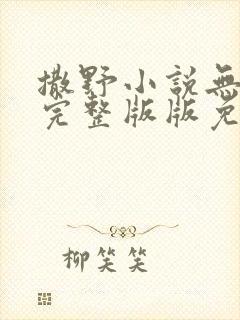 撒野小説無
完整版版免
柳笑笑